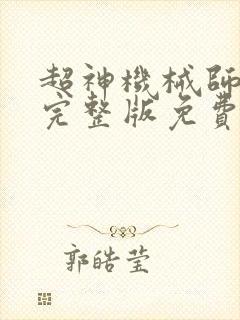 超神機械師
完整版免費
郭皓莹